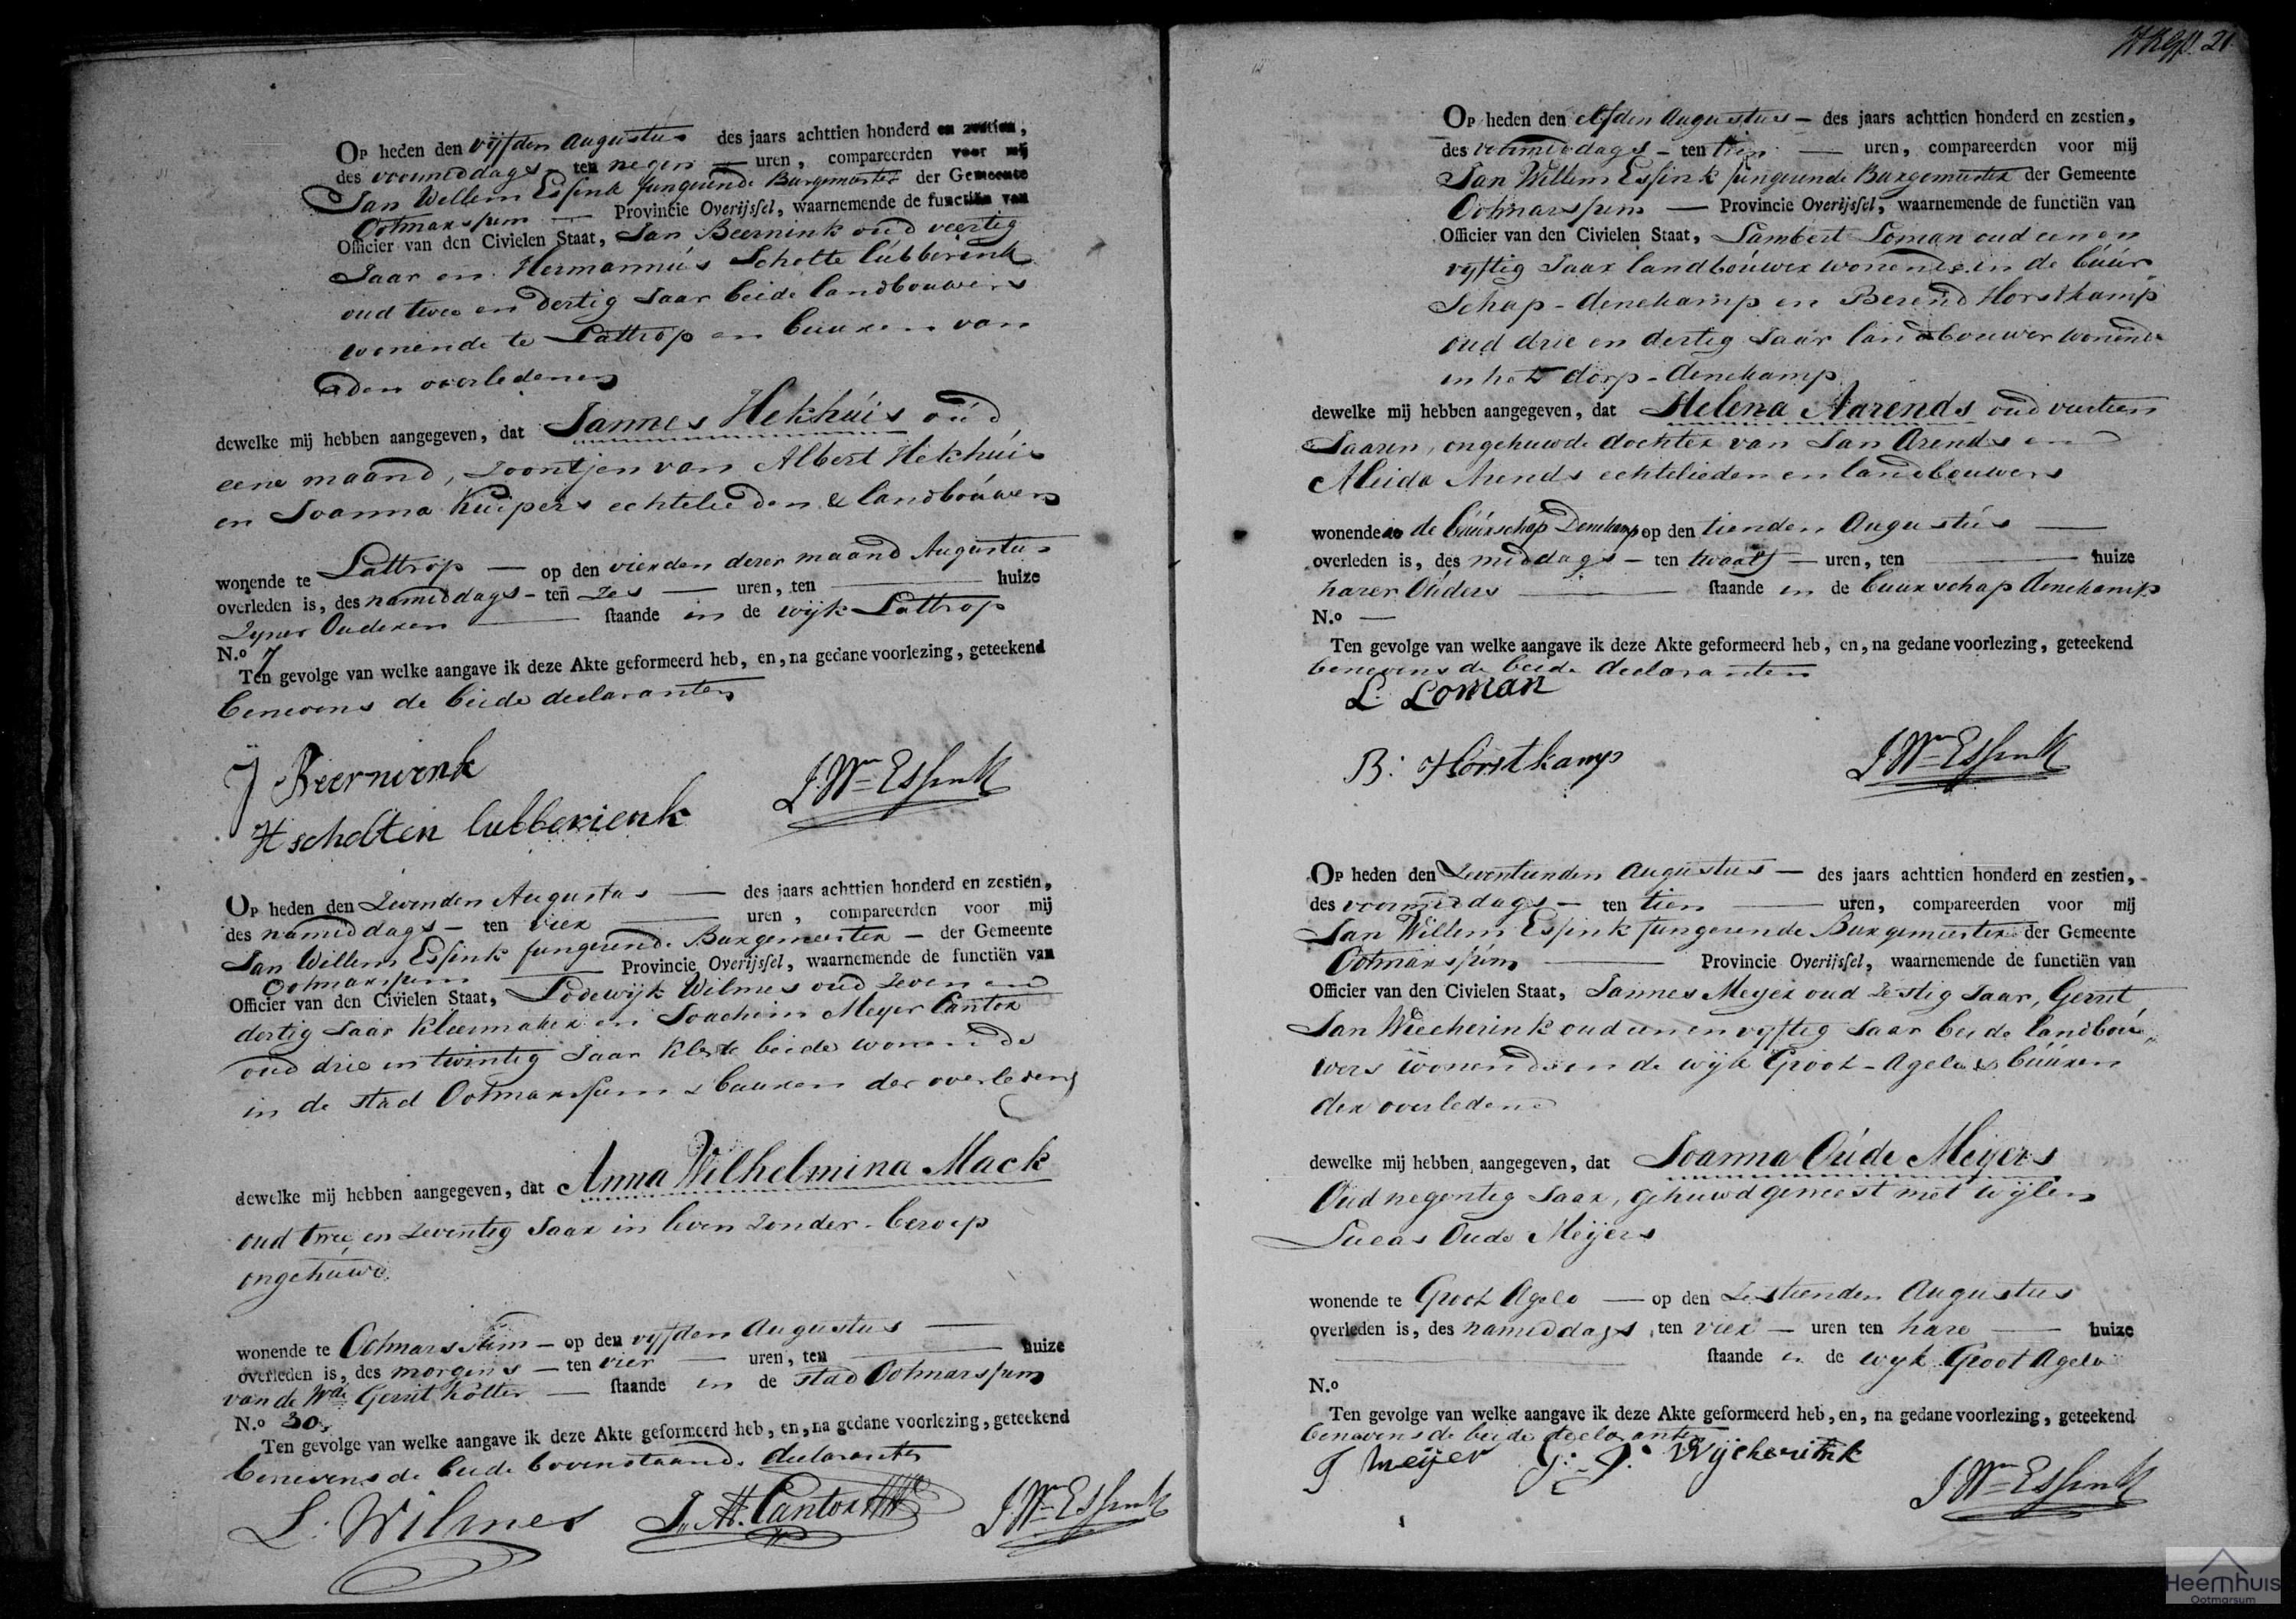 21.
Op heden den vijfden Augustus des jaars achttien honderd en zestien,
des voormeddags ten negen — uren, compareerden voor mij
Jan Willem Essink fungerende Burgemeester der Gemeente
Ootmarssum — Provincie Overijssel, waarnemende de functiën van
Officier van den Civielen Staat, Jan Beernink oud veertig
Jaar en Hermannus Scholte lubberink
oud twee en dertig Jaar beide landbouwers
wonende te Lattrop en buuren van
den overledenen
dewelke mij hebben aangegeven, dat Jannes Hekhuis oud
eene maand, zoontjen van Albert Hekhuis
en Joanna Kuipers echtelieden & landbouwers
wonende te Lattrop — op den vierden dezer maand Augustus
overleden is, des nameddags - ten zes — uren, ten — huize
zyner Ouderen — staande in de wijk Lattrop
N.o 7
Ten gevolge van welke aangave ik deze Akte geformeerd heb, en, na gedane voorlezing, geteekend
benevens de beide declaranten
J Beernink
J. Wm Essink
H scholten lubberienk
Op heden den Zevenden Augustus — des jaars achttien honderd en zestien,
des nameddags - ten vier — uren, compareerden voor mij
Jan Willem Essink fungerende Burgemeester — der Gemeente
Ootmarssum — Provincie Overijssel, waarnemende de functiën van
Officier van den Civielen Staat, Lodewijk Wilmes oud zeven en
dertig Jaar kleermaker en Joachim Meyer Cantor
oud drie en twintig Jaar beide wonende
in de stad Ootmarssum & buuren der overledene
dewelke mij hebben aangegeven, dat Anna Wilhelmina Mack
oud twee en zeventig Jaar in leven zonder beroep
ongehuwd.
wonende te Ootmarssum - op den vyfden Augustus —
overleden is, des morgens - ten vier — uren, ten — huize
van de Wde Gerrit Kotter — staande in de stad Ootmarssum
N.o 30,
Ten gevolge van welke aangave ik deze Akte geformeerd heb, en, na gedane voorlezing, geteekend
benevens de beide bovenstaande declaranten
L. Wilmes J. M. Cantor J. Wm Essink
Op heden den elfden Augustus — des jaars achttien honderd en zestien,
des voormeddags - ten tien — uren, compareerden voor mij
Jan Willem Essink fungerende Burgemeester der Gemeente
Ootmarssum — Provincie Overijssel, waarnemende de functiën van
Officier van den Civielen Staat, Lambert Loman oud een en
vyftig Jaar landbouwer wonende in de buur-
schap - denekamp en Berend Horstkamp
oud drie en dertig Jaar landbouwer wonende
in het dorp - denekamp
dewelke mij hebben aangegeven, dat Helena Aarends oud veertien
Jaaren, ongehuwde dochter van Jan Arends en
Aleida Arends echtelieden en landbouwers
wonende in de buurschap Denekamp op den tienden Augustus —
overleden is, des middags - ten twaalf — uren, ten — huize
harer Ouders — staande in de buurschap denekamp
N.o —
Ten gevolge van welke aangave ik deze Akte geformeerd heb, en, na gedane voorlezing, geteekend
benevens de beide declaranten
L. Loman
B: Horstkamp J. Wm Essink
Op heden den Zeventienden Augustus — des jaars achttien honderd en zestien,
des voormeddags - ten tien — uren, compareerden voor mij
Jan Willem Essink fungerende Burgemeester der Gemeente
Ootmarssum — Provincie Overijssel, waarnemende de functiën van
Officier van den Civielen Staat, Jannes Meyer oud zestig Jaar, Gerrit
Jan Wiecherink oud een en vyftig Jaar beide landbou-
wers wonende in de wijk Groot-Agelo & buuren
der overledene
dewelke mij hebben aangegeven, dat Joanna Oude Meijers
Oud negentig Jaar, gehuwd geweest met wijlen
Lucas Oude Meijers
wonende te Groot Agelo — op den Zestienden Augustus
overleden is, des nameddags, ten vier — uren ten hare — huize
— staande in de wyk Groot Agelo
N.o
Ten gevolge van welke aangave ik deze Akte geformeerd heb, en, na gedane voorlezing, geteekend
benevens de beide declaranten
J Meijer G: J: Wijcherink
J. Wm Essink
Heemhuis
Ootmarsum